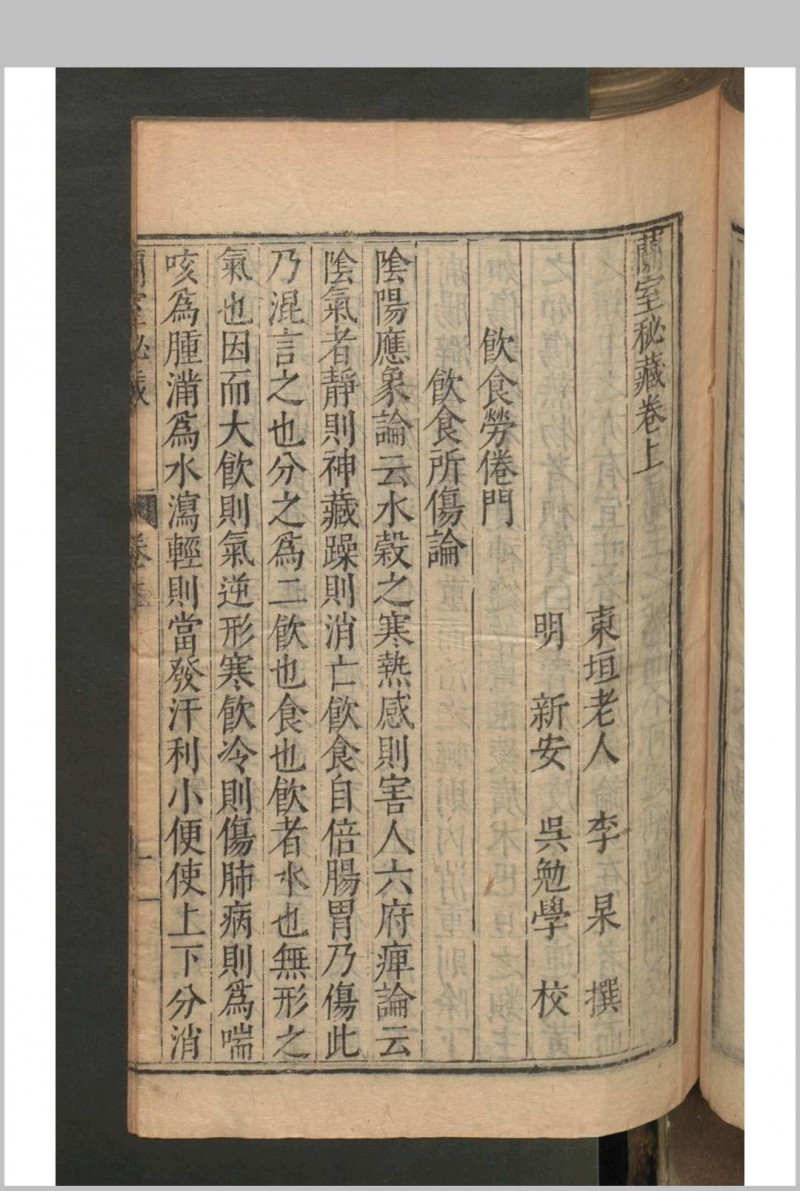 蘭室秘藏卷上
東垣老人 李杲 撰
明 新安 吳勉學 校
飲食勞倦門
飲食所傷論
陰陽應象論云水穀之寒熱感則害人六府痺論云
陰氣者靜則神藏躁則消亡飲食自倍腸胃乃傷此
乃混言之也分之為二飲也食也飲者水也無形之
氣也因而大飲則氣逆形寒飲冷則傷肺病則為喘
咳為腫滿為水瀉輕則當發汗利小便使上下分消
蘭室秘藏 卷 一